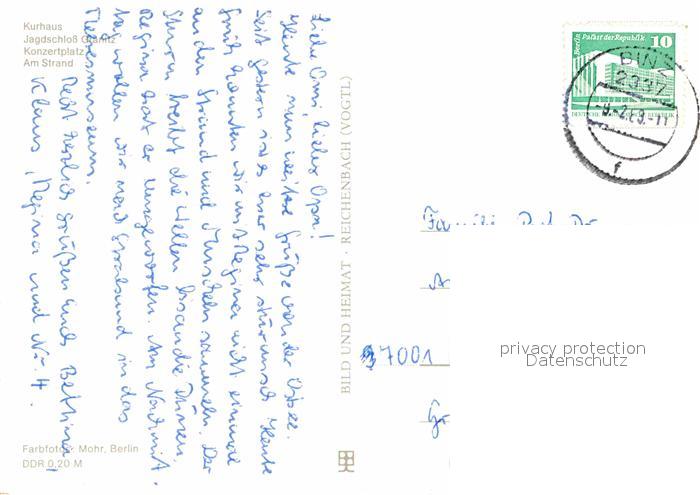 Kurhaus
Jagdschloß Granitz
Konzertplatz
Am Strand
Liebe Omi, lieber Opa!
Heute nun weitere Grüße von der Ostsee.
Seit gestern ist es hier sehr stürmisch. Heute
früh konnten wir mit Regina nicht einmal
an den Strand und Muscheln sammeln. Der
Sturm treibt die Wellen bis an die Dünen.
Regina hat er umgeworfen. Am Nachmit-
tag wollen wir nach Stralsund in das
Meeresmuseum.
Recht herzliche Grüßen Euch Bettina,
Klaus, Regina und Nr. 4.
Farbfotos: Mohr, Berlin
DDR 0,20 M
BILD UND HEIMAT · REICHENBACH (VOGTL)
Berlin Palast der Republik
10
DEUTSCHE DEMOKRATISCHE REPUBLIK
BINZ
2337
f
7001
privacy protection
Datenschutz